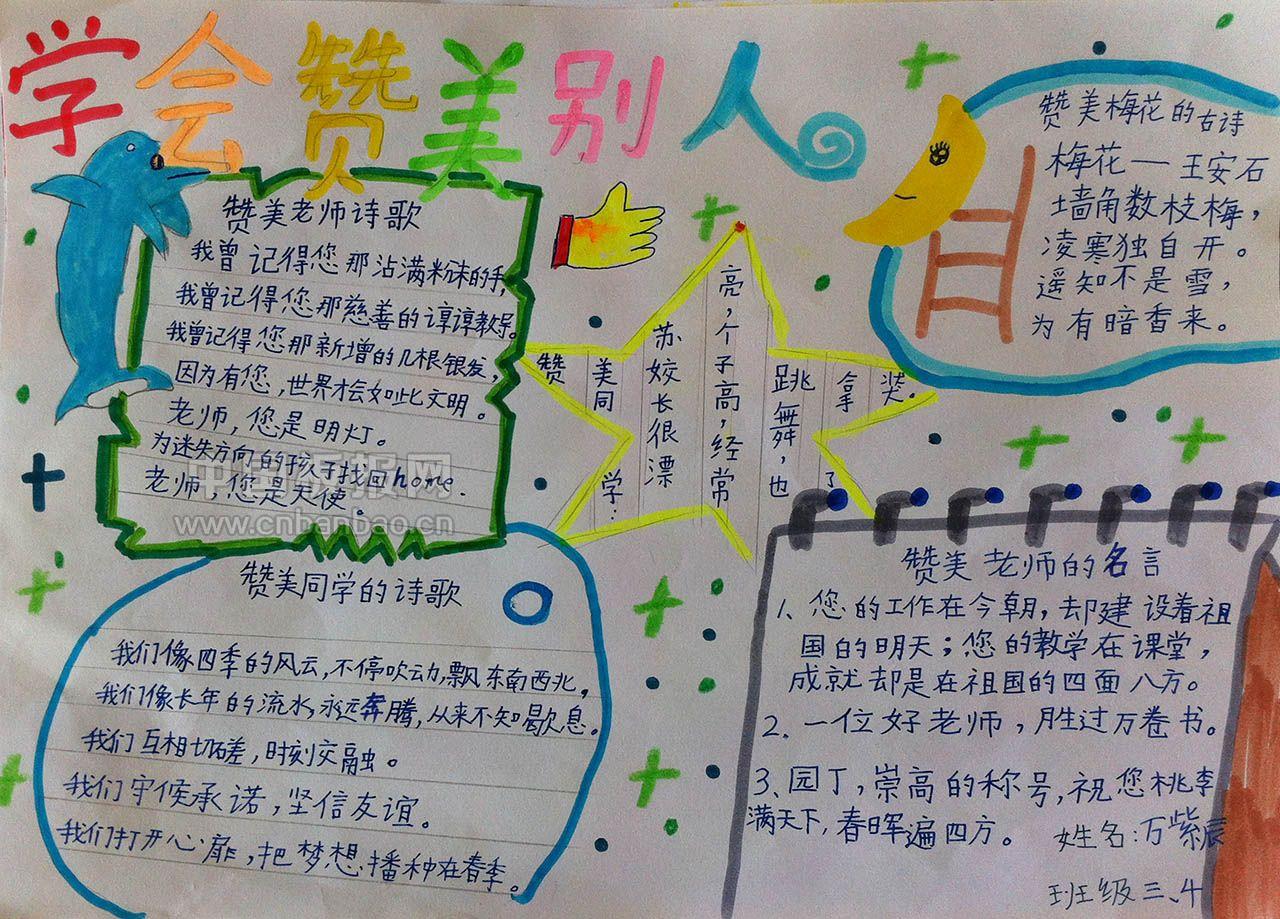 学会赞美别人
赞美老师诗歌
我曾记得您那沾满粉沫的手,
我曾记得您那慈善的谆谆教导。
我曾记得您那新增的几根银发,
因为有您,世界才会如此文明。
老师,您是明灯。
为迷失方向的孩子找回home.
老师,您是天使。
中国板报网
www.cnbanbao.cn
赞
美同
学:
苏姣长很漂
亮,个子高,经常
跳舞,也
拿了
奖。
赞美梅花的古诗
梅花—王安石
墙角数枝梅,
凌寒独自开。
遥知不是雪,
为有暗香来。
赞美同学的诗歌
我们像四季的风云,不停吹动,飘东南西北,
我们像长年的流水,永远奔腾,从来不知歇息。
我们互相切磋,时刻交融。
我们守候承诺,坚信友谊。
我们打开心扉,把梦想播种在春季。
赞美老师的名言
1、您的工作在今朝,却建设着祖
国的明天;您的教学在课堂,
成就却是在祖国的四面八方。
2、一位好老师,胜过万卷书。
3、园丁,崇高的称号,祝您桃李
满天下,春晖遍四方。
姓名:万紫辰
班级三、4